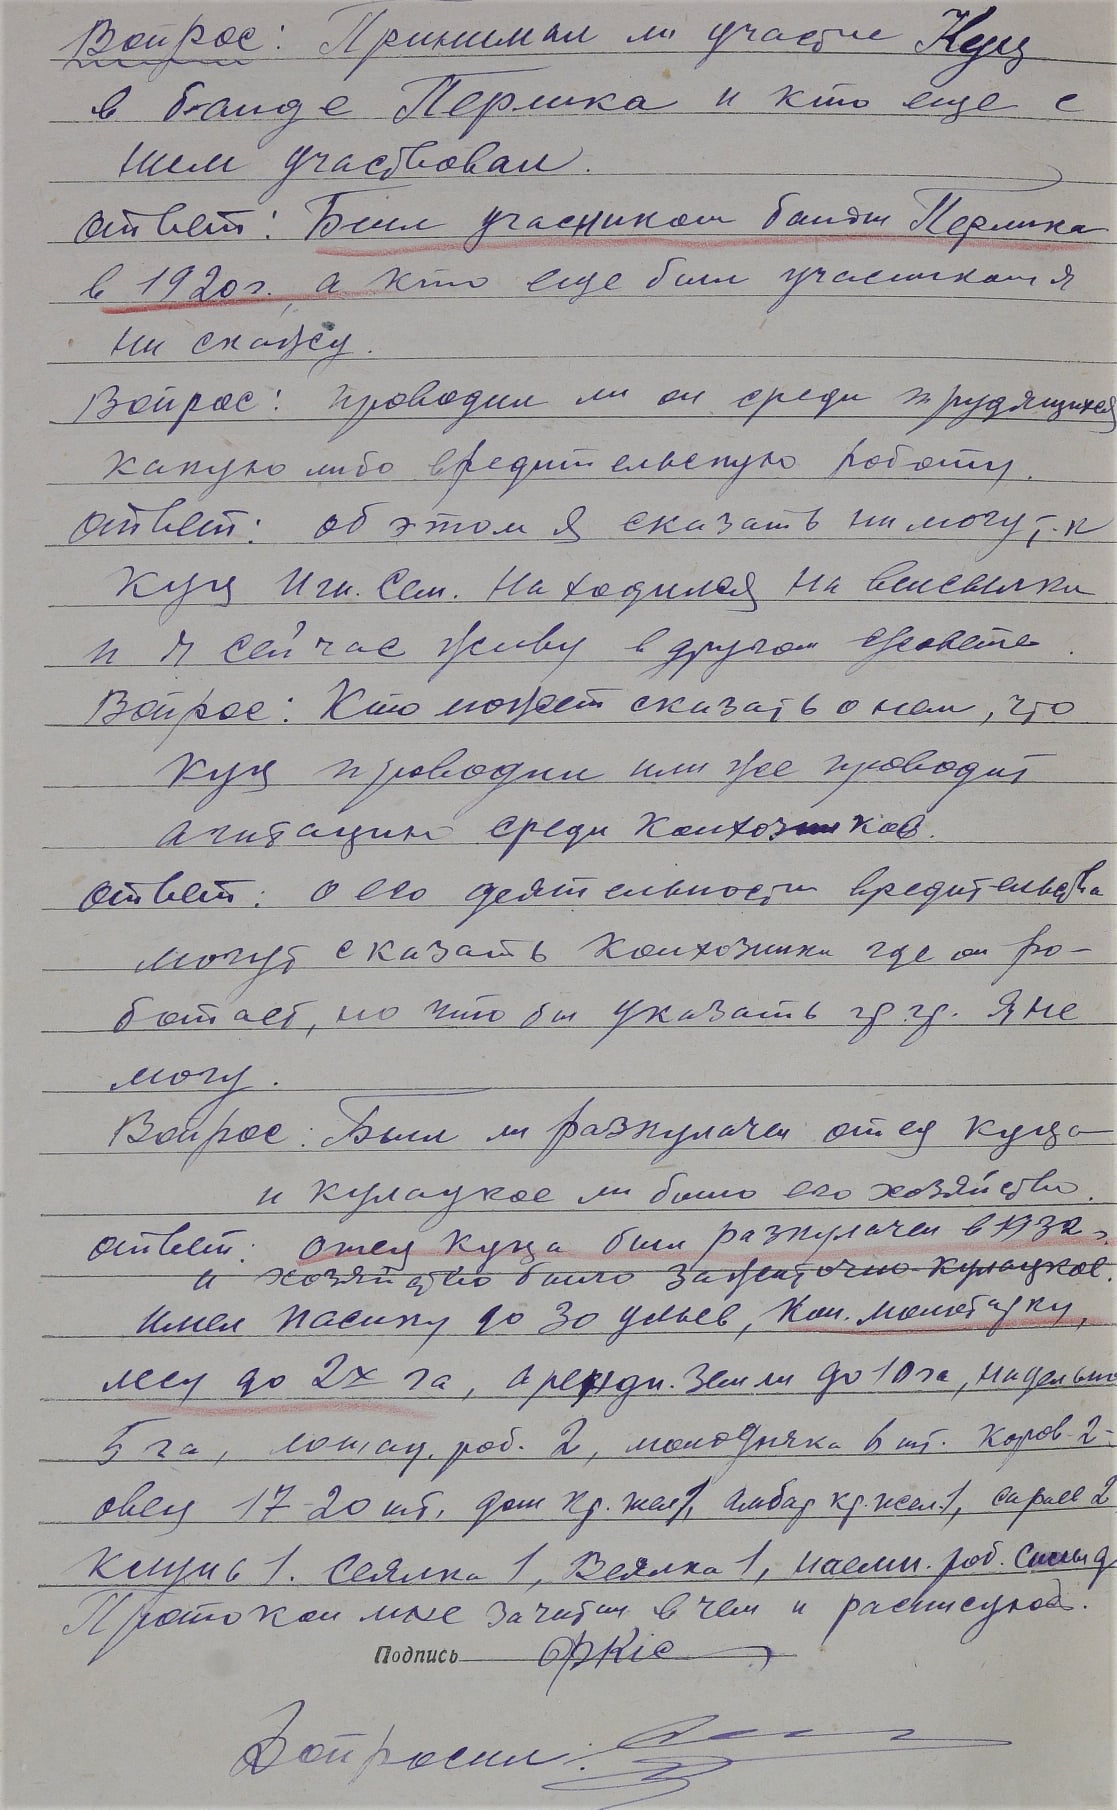 Вопрос: Принимал ли участие Куц
в банде Перлика и кто еще с
ним участвовал.
Ответ: Был учасником банды Перлика
в 1920 г. а кто еще был учасником я
ни скажу.
Вопрос: проводил ли он среди трудящихся
какую либо вредительскую роботу.
Ответ: об этом я сказать ни могу, т.к
Куц Игн. Сем. находился на высылки
и я сейчас живу в другом с/совете.
Вопрос: Кто может сказать о нем, что
Куц проводил или же проводит
агитацию среди колхозников.
Ответ: о его деятельности вредительства
могут сказать колхозники где он ро-
ботает, но что бы указать гр. гр. я не
могу.
Вопрос: Был ли разкулачен отец Куца
и кулацкое ли было его хозяйство.
Ответ: отец Куца был разкулачен в 1930 г.
и хозяйство было зажиточно-кулацкое.
имел пасику до 30 ульев, кон. молотарку,
лесу до 2х га, аренди. земли до 10 га, надельно
5 га, лошад. роб. 2, молодняка 6 шт. коров-2-
овец 17-20 шт. дом кр. жел 1, амбар кр. жел. 1, сараев 2
1. сеялка 1, Веялка 1, наемн. роб.
Протокол мне зачитан в чем и расписуюсь.
Подпись
Допросил: